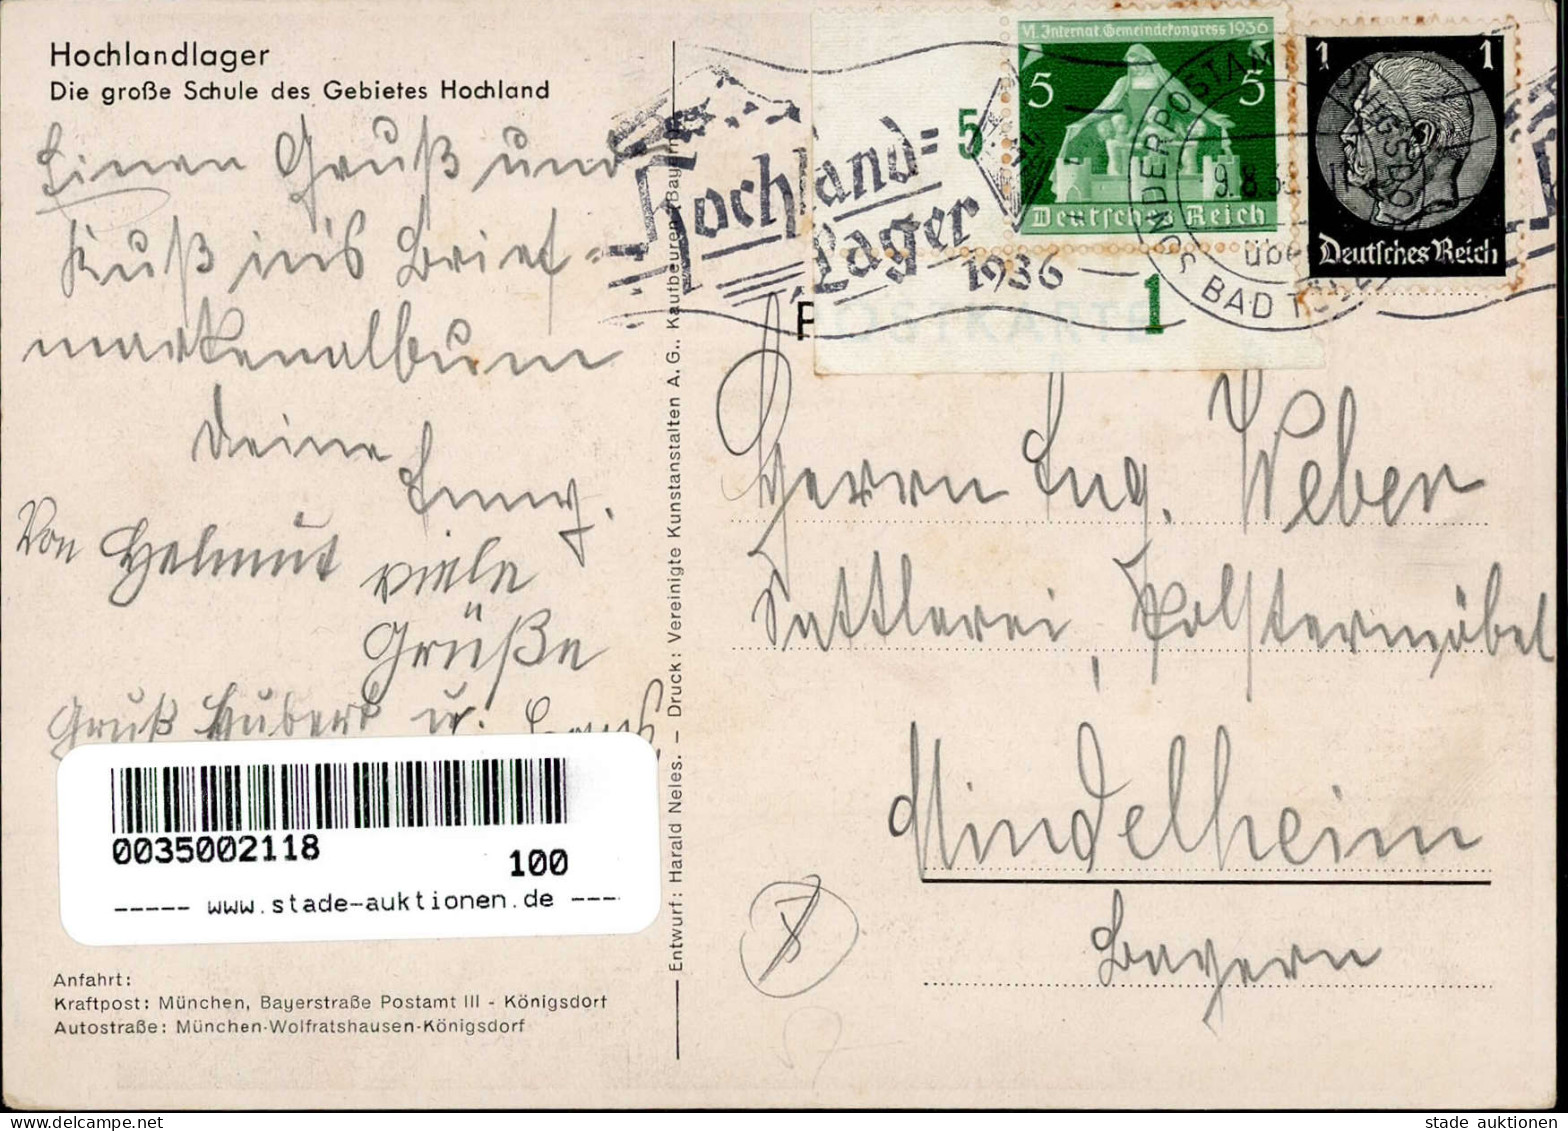 Hochlandlager
Die große Schule des Gebietes Hochland
Einen Gruß und
Kuß in's Brief=
markenalbum
Deine
Von Helmut viele
Grüße
Gruß Hubert u.
0035002118
100
----- www.stade-auktionen.de ----
Anfahrt:
Kraftpost: München, Bayerstraße Postamt III - Königsdorf
Autostraße: München-Wolfratshausen-Königsdorf
Entwurf: Harald Neles. — Druck: Vereinigte Kunstanstalten A. G., Kaufbeuren (Bayern)
VI. Internat. Gemeindekongress 1936
5 5
Deutsches Reich
5
1
1 1
Deutsches Reich
Hochland=
Lager
1936
SONDERPOSTAMT
9.8.36
über
BAD TÖLZ
POSTKARTE
Herrn Lug. Weber
Sattlerei, Polstermöbel
Mindelheim
Bayern
stade auktionen